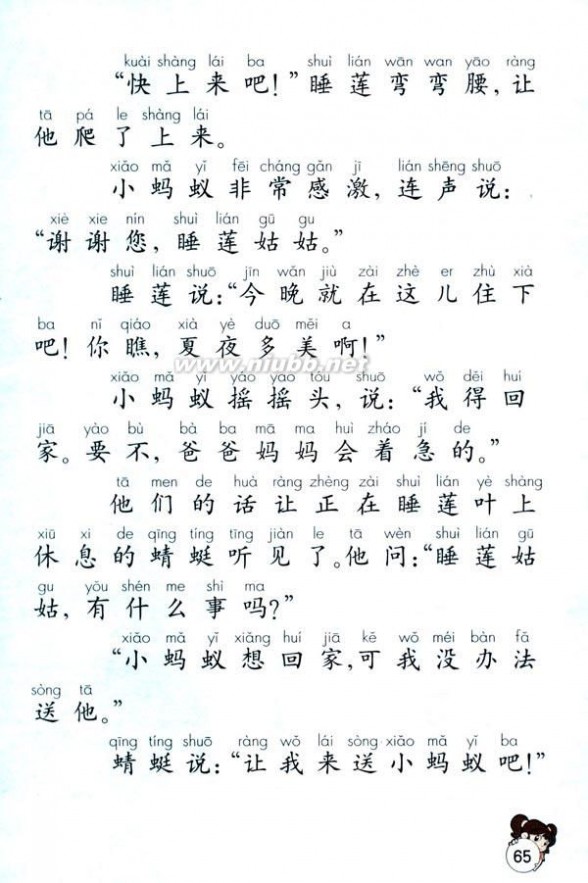 kuài shàng lái ba shuì lián wān wan yāo ràng
“快上来吧!”睡莲弯弯腰,让
tā pá le shàng lái
他爬了上来。
xiǎo mǎ yǐ fēi cháng gǎn jī lián shēng shuō
小蚂蚁非常感激,连声说:
xiè xie nín shuì lián gū gu
“谢谢您,睡莲姑姑。”
shuì lián shuō jīn wǎn jiù zài zhè er zhù xià
睡莲说:“今晚就在这儿住下
ba nǐ qiáo xià yè duō měi a
吧!你瞧,夏夜多美啊!”
www.niubb.net
xiǎo mǎ yǐ yáo yao tóu shuō wǒ děi huí
小蚂蚁摇摇头,说:“我得回
jiā yào bù bà ba mā ma huì zháo jí de
家。要不,爸爸妈妈会着急的。”
tā men de huà ràng zhèng zài shuì lián yè shàng
他们的话让正在睡莲叶上
xiū xi de qīng tíng tīng jiàn le tā wèn shuì lián gū
休息的蜻蜓听见了。他问:“睡莲姑
gu yǒu shén me shì ma
姑,有什么事吗?”
xiǎo mǎ yǐ xiǎng huí jiā kě wǒ méi bàn fǎ
“小蚂蚁想回家,可我没办法
sòng tā
送他。”
qīng tíng shuō ràng wǒ lái sòng xiǎo mǎ yǐ ba
蜻蜓说:“让我来送小蚂蚁吧!”
65